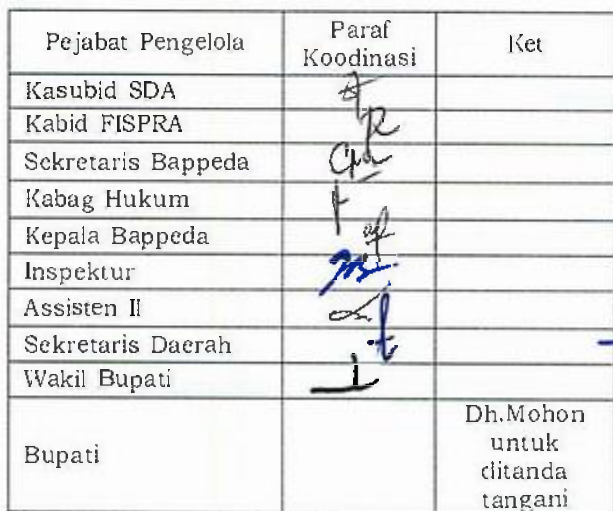 Pejabat Pengelola
Paraf
Koodinasi
Ket
Kasubid SDA
Kabid FISPRA
Sekretaris Bappeda
Kabag Hukum
Kepala Bappeda
Inspektur
Assisten II
Sekretaris Daerah
Wakil Bupati
Bupati
Dh.Mohon
untuk
ditanda
tangani